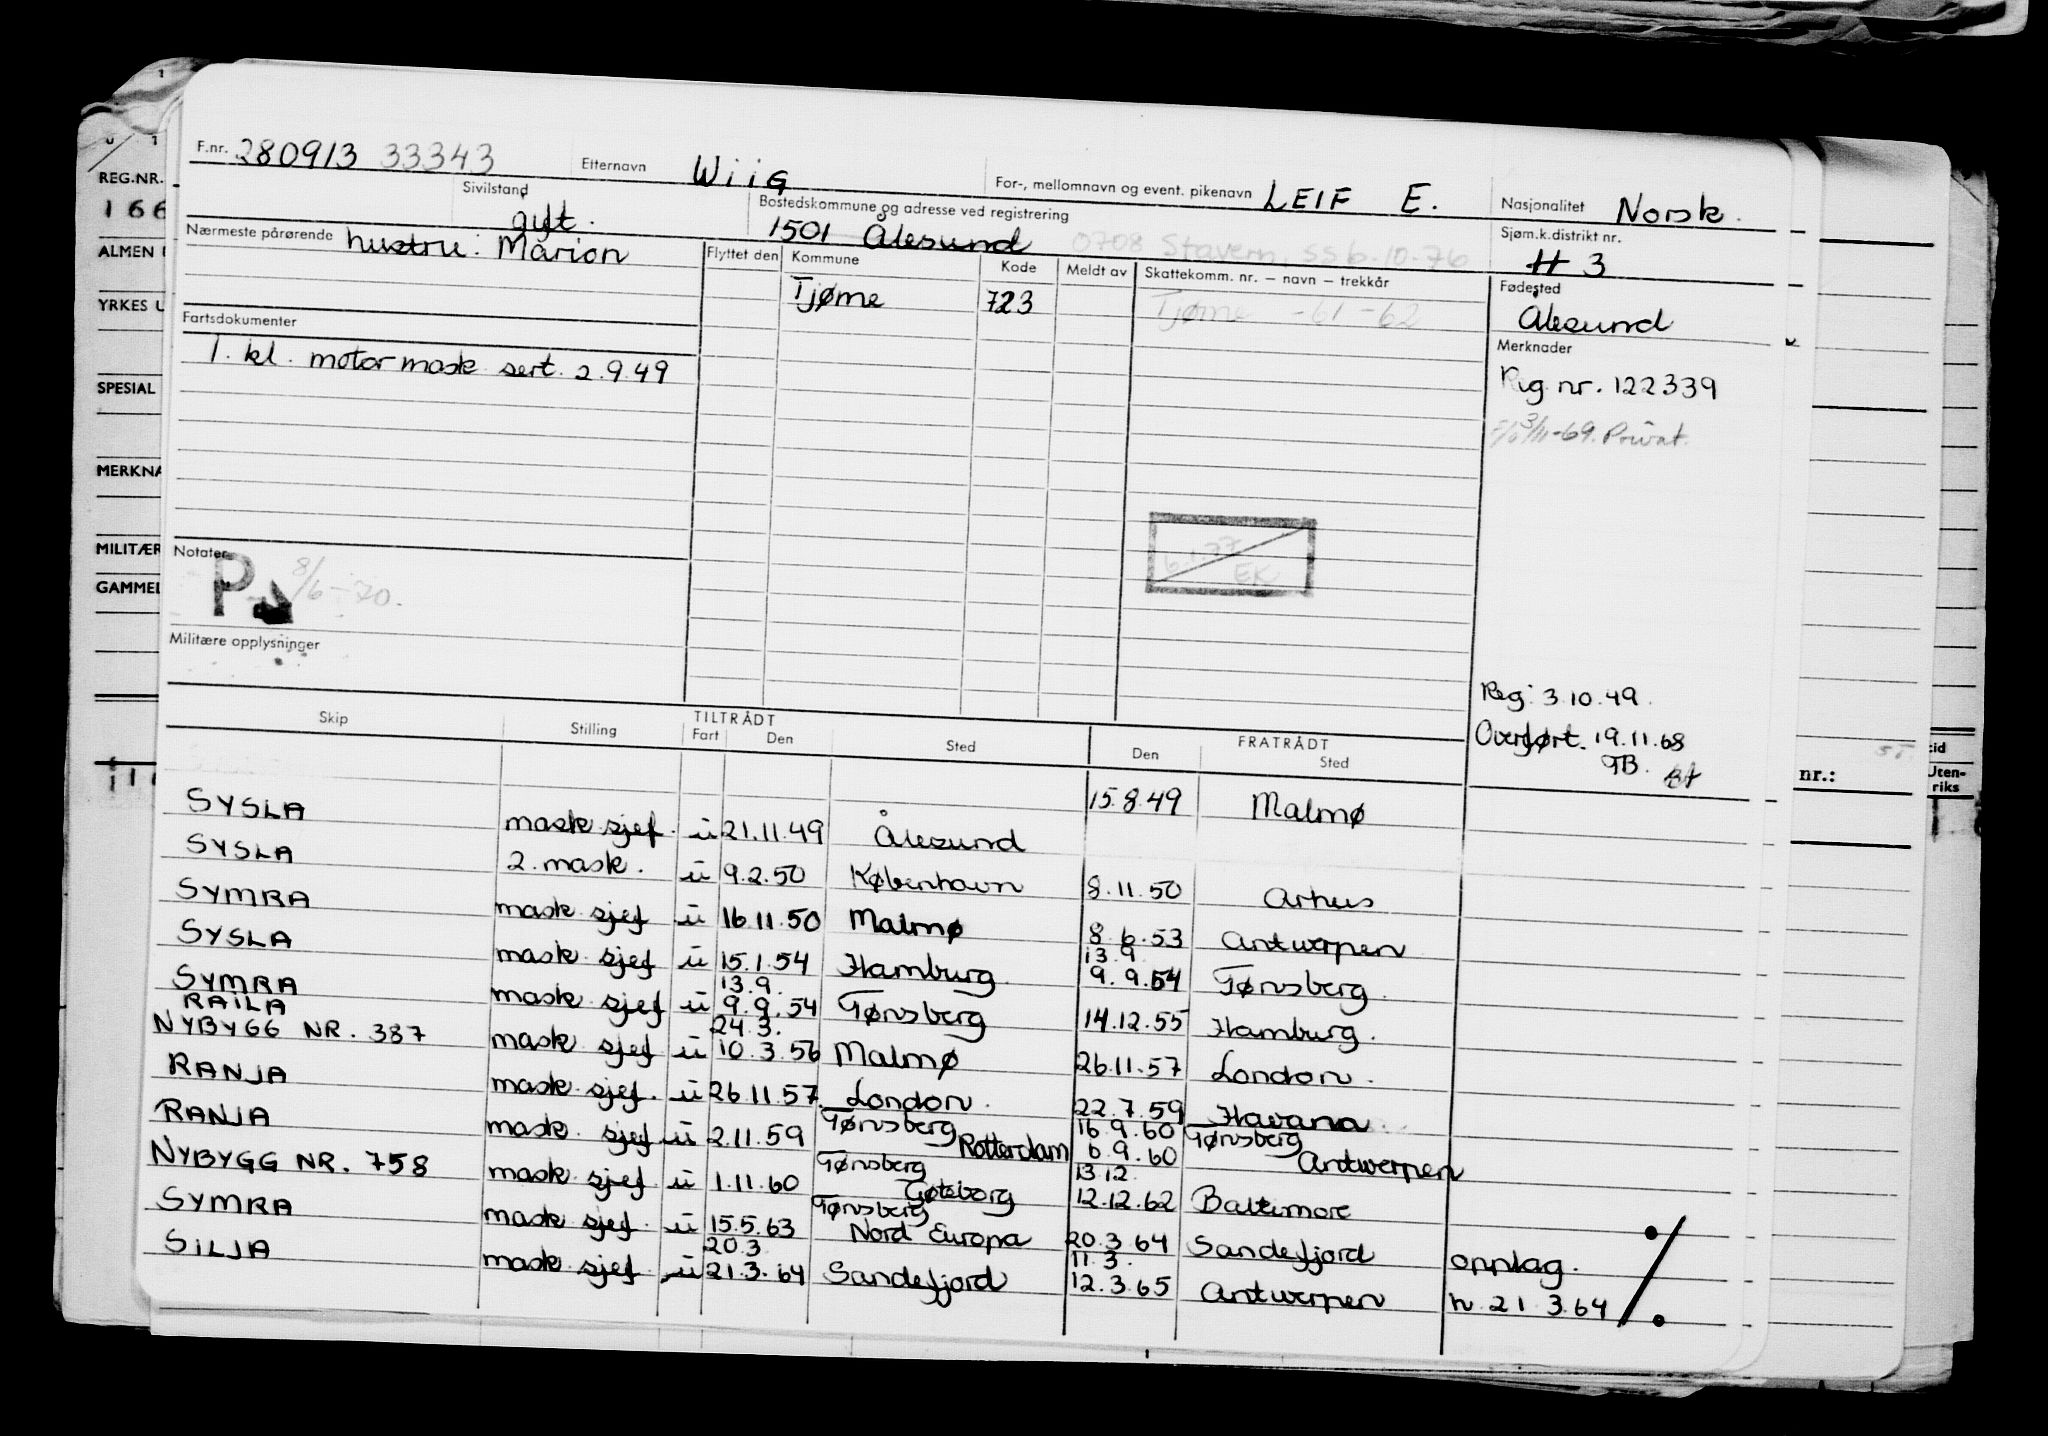 F.nr. 280913 33343 Etternavn Wiig For-, mellomnavn og event. pikenavn LEIF E. Nasjonalitet Norsk.
REG.NR.
166
Sivilstand gift. Bostedskommune og adresse ved registrering 1501 Ålesund 0708 Stavern, ss 6.10.76 Sjøm.k.distrikt nr. # 3
Nærmeste pårørende hustru: Marion
Flyttet den Kommune Kode Meldt av Skattekomm. nr. – navn – trekkår Fødested
ALMEN
Tjøme 723 Tjøme -61-62 Ålesund
YRKES U
Fartsdokumenter
Merknader
1. kl. motormask sert. 2.9.49
Reg nr. 122339
SPESIAL
3/11-69. Privat.
MERKNA
MILITÆR
Notater
P 8/6-70.
6.1.77
EK
GAMMEL
Militære opplysninger
Reg: 3.10.49.
Overført. 19.11.68
TB.
nr.:
tid
Uten-
riks
TILTRÅDT FRATRÅDT
Skip Stilling Fart Den Sted Den Sted
15.8.49 Malmø
SYSLA mask sjef. u 21.11.49 Ålesund
SYSLA 2. mask. u 9.2.50 København 8.11.50 Århus
SYMRA mask sjef u 16.11.50 Malmø 8.6.53 Antwerpen
13.9
SYSLA mask sjef u 15.1.54 Hamburg 9.9.54 Tønsberg.
13.9.
SYMRA mask sjef u 9.9.54 Tønsberg 14.12.55 Hamburg.
RAILA 24.3.
NYBYGG NR. 387 mask sjef u 10.3.56 Malmø 26.11.57 London.
RANJA mask sjef. u 26.11.57 London. 22.7.59 Havana
Tønsberg 16.9.60 Tønsberg
RANJA mask. sjef u 2.11.59 Rotterdam 6.9.60 Antwerpen
Tønsberg 13.12.
NYBYGG NR. 758 mask sjef u 1.11.60 Gøteborg 12.12.62 Baltimore
Tønsberg
SYMRA mask sjef. u 15.5.63 Nord Europa 20.3.64 Sandefjord opplag.
20.3. 11.3.
SILJA mask sjef u 21.3.64 Sandefjord 12.3.65 Antwerpen h. 21.3.64